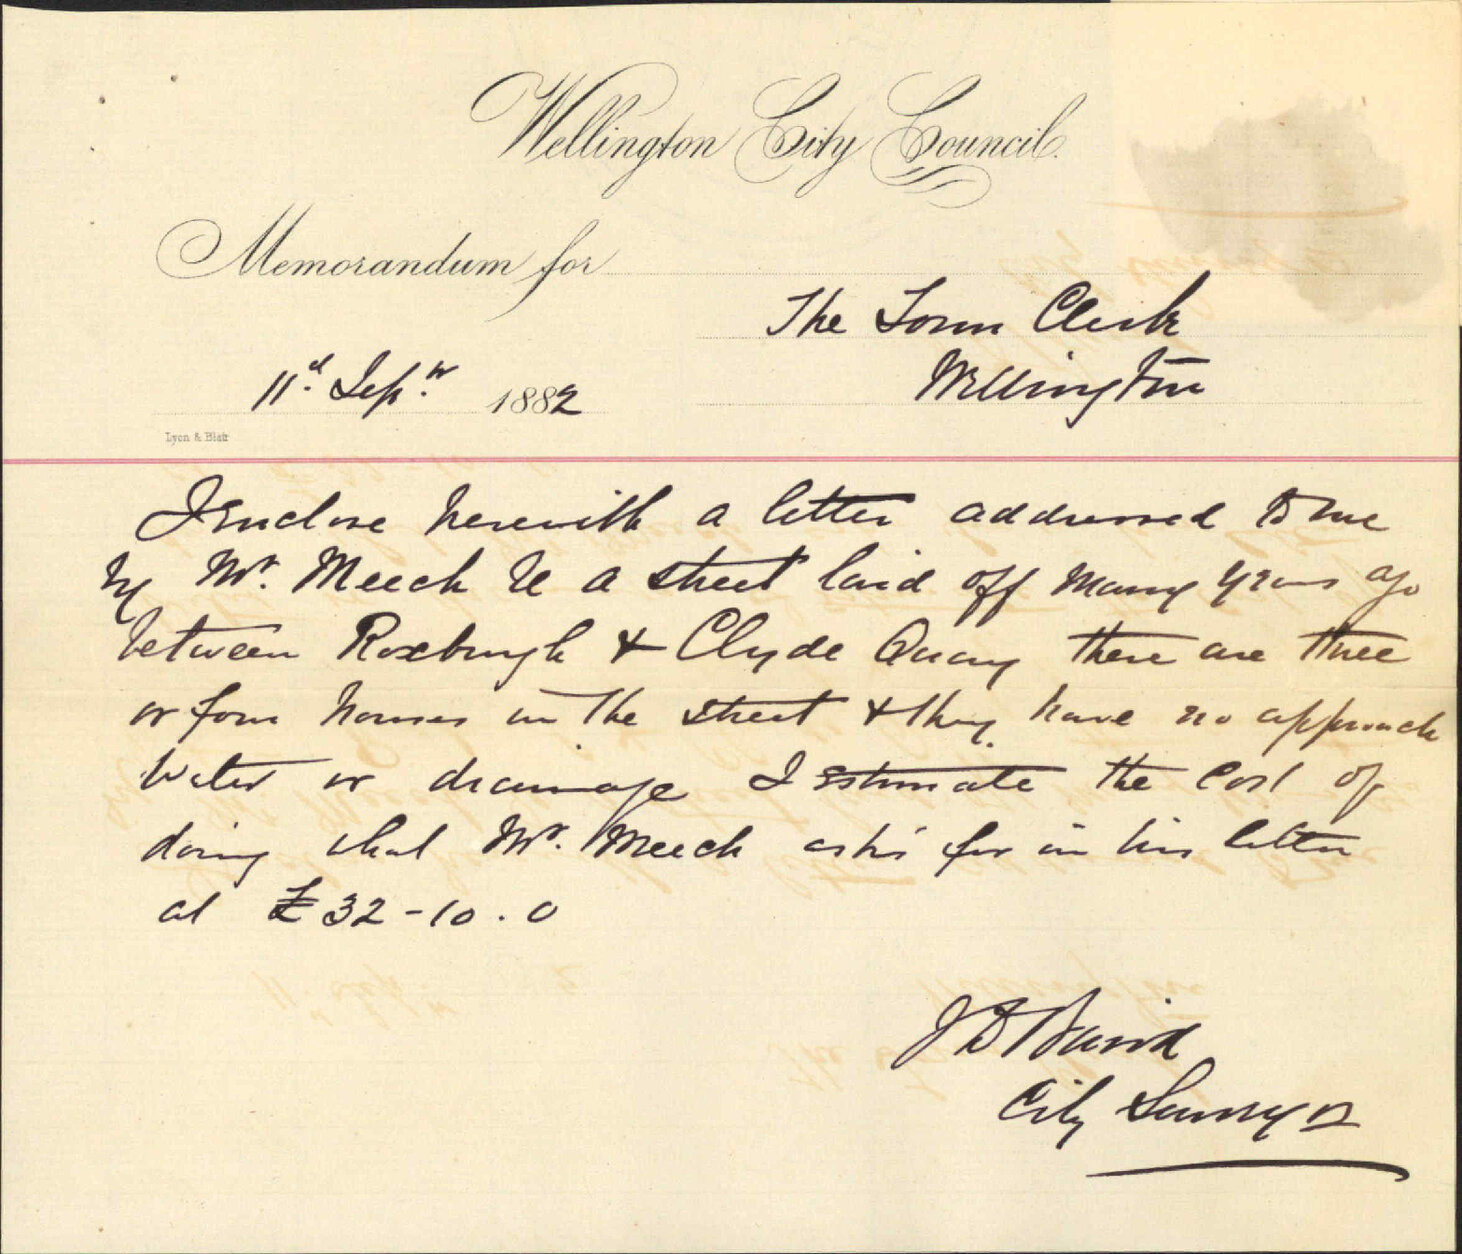 Wellington City Council.
Memorandum for
The Town Clerk
Wellington
11th Sepr. 1882
Lyon & Blair
I enclose herewith a letter addressed to me
by Mr. Meech re a street laid off many years ago
between Roxburgh & Clyde Quay there are three
or four houses in the street & they have no approach
water or drainage I estimate the cost of
doing what Mr. Meech asks for in his letter
at £32-10.0
J D Baird
City Surveyor